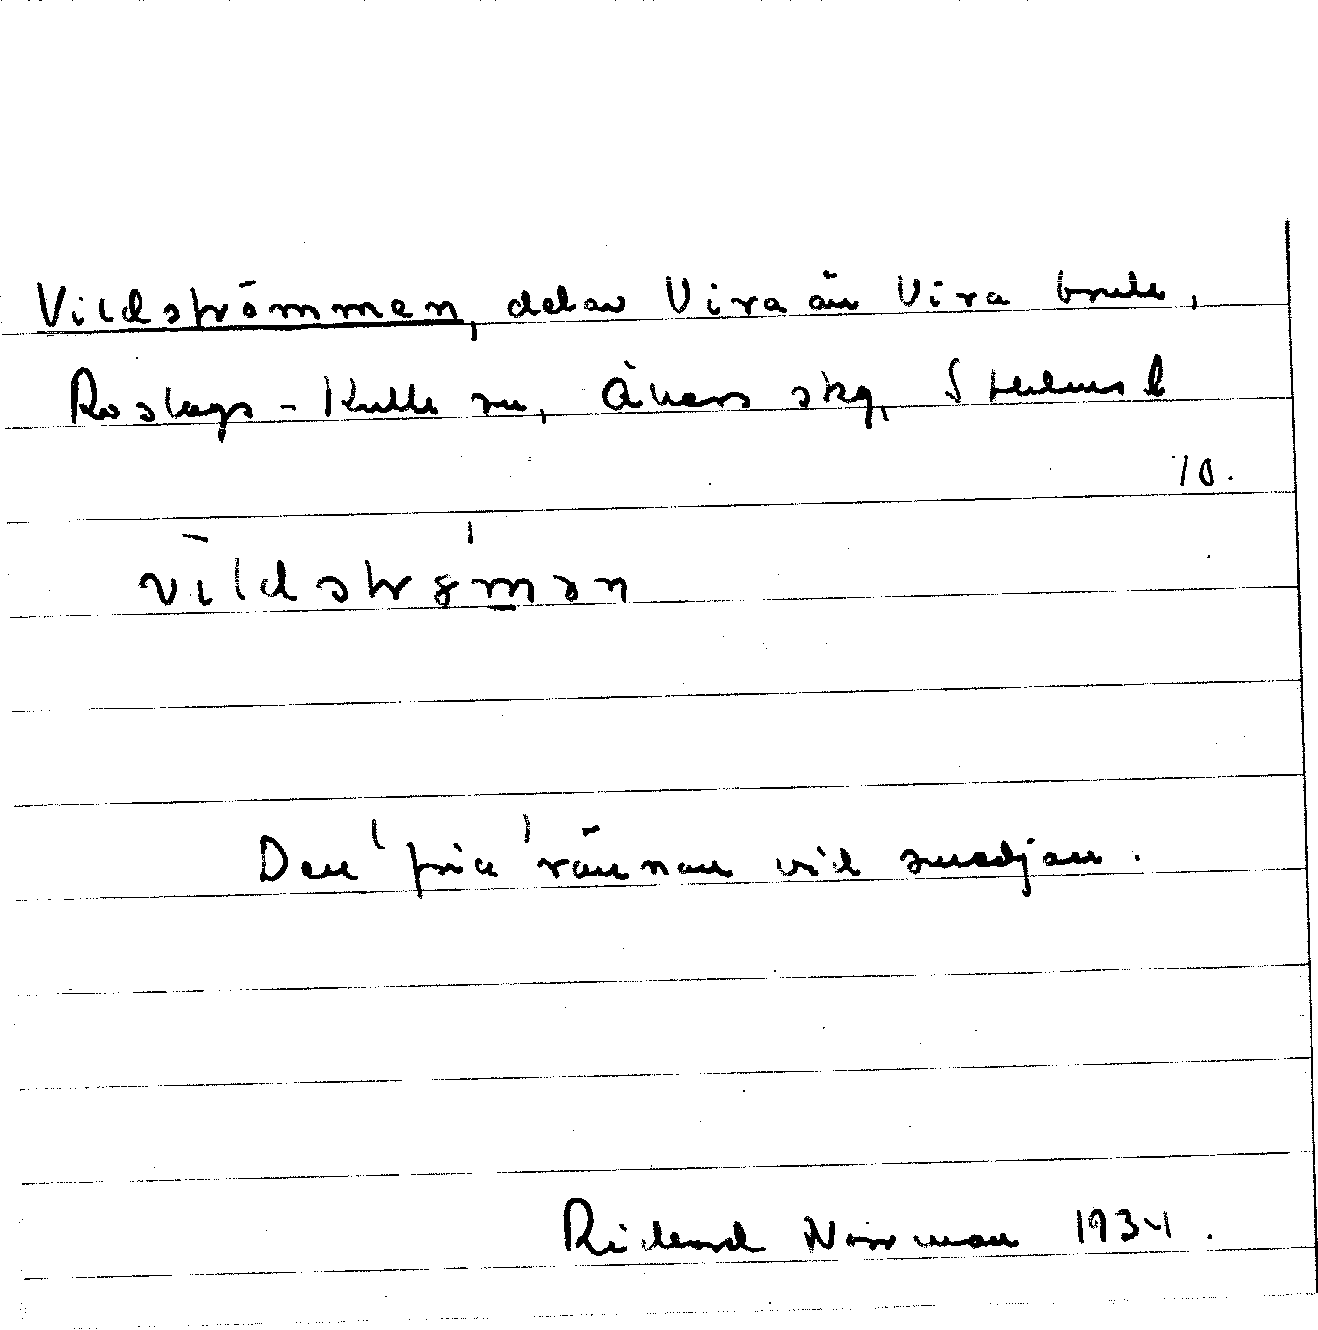 Vildströmmen, del av Vira ån Vira bruk,
Roslags-Kulla sn, Åkers skg, Stockhms l
10.
vildstrømən
Den 'fria' rännan vid smedjan.
Richard Norrman 1934.